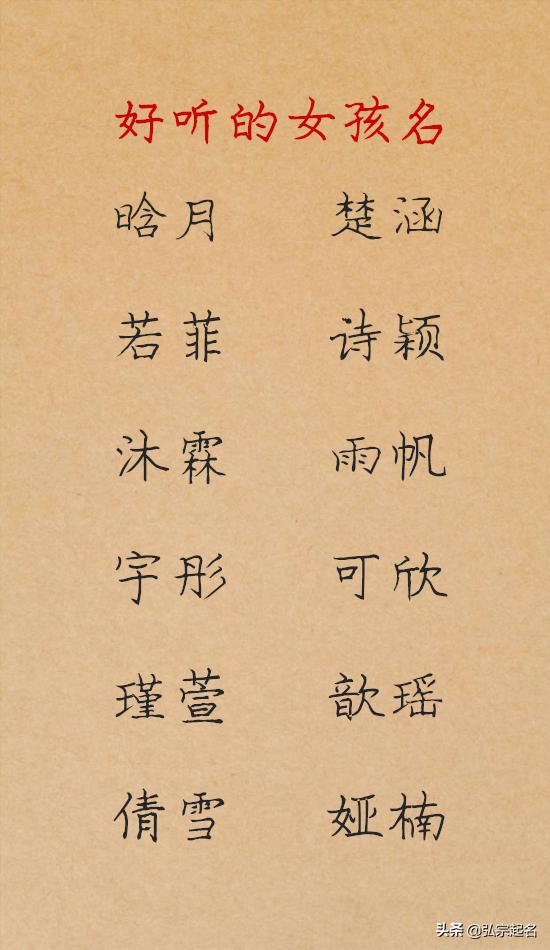 好听的女孩名
晗月 楚涵
若菲 诗颖
沐霖 雨帆
宇彤 可欣
瑾萱 歆瑶
倩雪 娅楠
头条 @弘宗起名